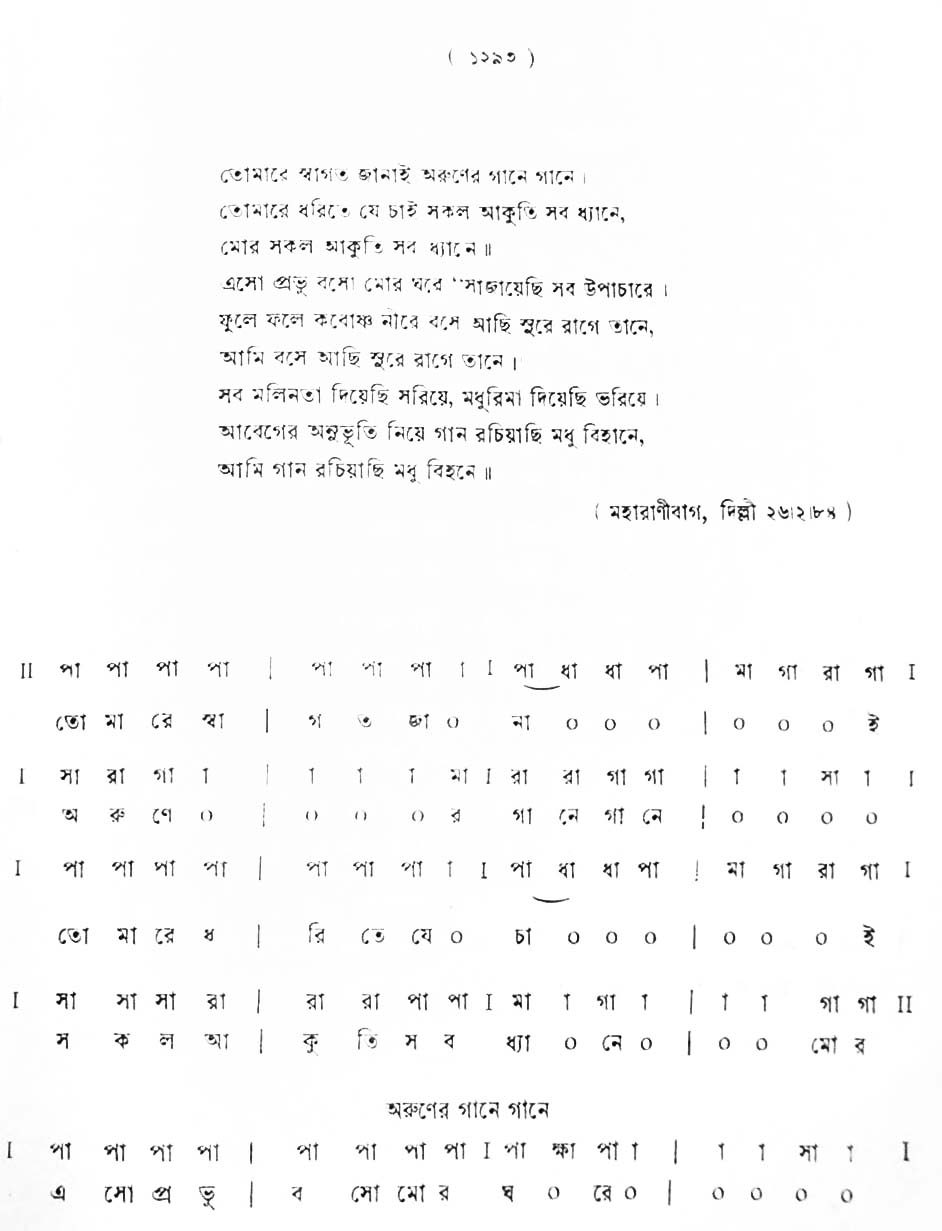 ( ১২৯৩ )
তোমারে স্বাগত জানাই অরুণের গানে গানে।
তোমারে ধরিতে যে চাই সকল আকুতি সব ধ্যানে,
মোর সকল আকুতি সব ধ্যানে॥
এসো প্রভু বসো মোর ঘরে “সাজায়েছি সব উপাচারে।
ফুলে ফলে কবোষ্ণ নীরে বসে আছি সুরে রাগে তানে,
আমি বসে আছি সুরে রাগে তানে।
সব মলিনতা দিয়েছি সরিয়ে, মধুরিমা দিয়েছি ভরিয়ে।
আবেগের অনুভূতি নিয়ে গান রচিয়াছি মধু বিহানে,
আমি গান রচিয়াছি মধু বিহনে॥
( মহারাণীবাগ, দিল্লী ২৬।২।৮৪ )
II পা পা পা পা | পা পা পা া I পা ধা ধা পা | মা গা রা গা I
তো মা রে স্বা | গ ত জা ০ না ০ ০ ০ | ০ ০ ০ ই
I সা রা গা া | া া া মা I রা রা গা গা | া া সা া I
অ রু ণে ০ | ০ ০ ০ র গা নে গা নে | ০ ০ ০ ০
I পা পা পা পা | পা পা পা া I পা ধা ধা পা | মা গা রা গা I
তো মা রে ধ | রি তে যে ০ চা ০ ০ ০ | ০ ০ ০ ই
I সা সা সা রা | রা রা পা পা I মা া গা া | া া গা গা II
স ক ল আ | কু তি স ব ধ্যা ০ নে ০ | ০ ০ মো র
অরুণের গানে গানে
I পা পা পা পা | পা পা পা পা I পা ক্ষা পা া | া া সা া I
এ সো প্র ভু | ব সো মো র ঘ ০ রে ০ | ০ ০ ০ ০